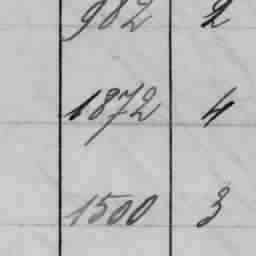 982 2
1872 4
1500 3